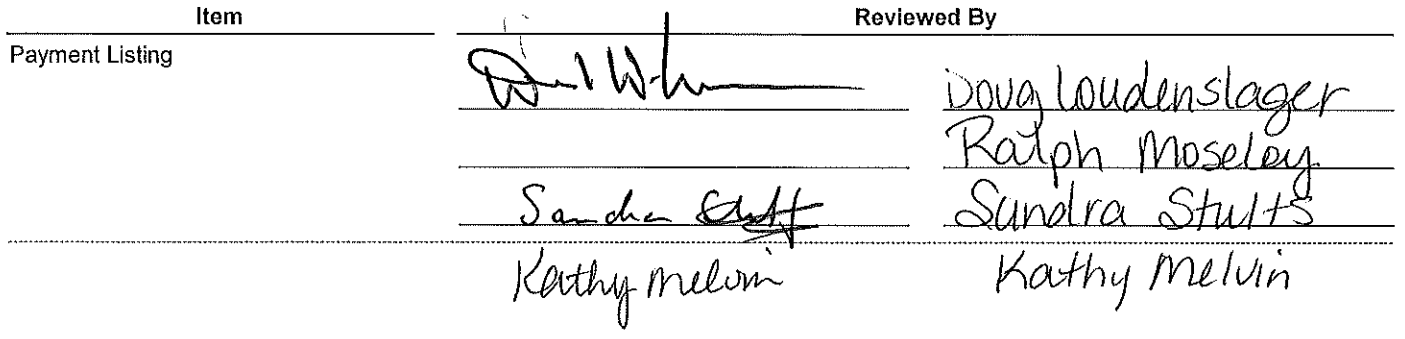 Item Reviewed By
Payment Listing
Doug Loudenslager
Ralph Moseley
Sandra Stults Sandra Stults
Kathy Melvin Kathy Melvin